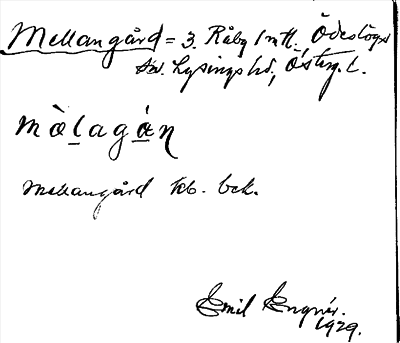 Mellangård = 3. Råby 1 mtl. Ödeshögs
sn. Lysings hd, Österg. l.
mὰlagán
Mellangård kb. bek.
Emil Engnér.
1929.